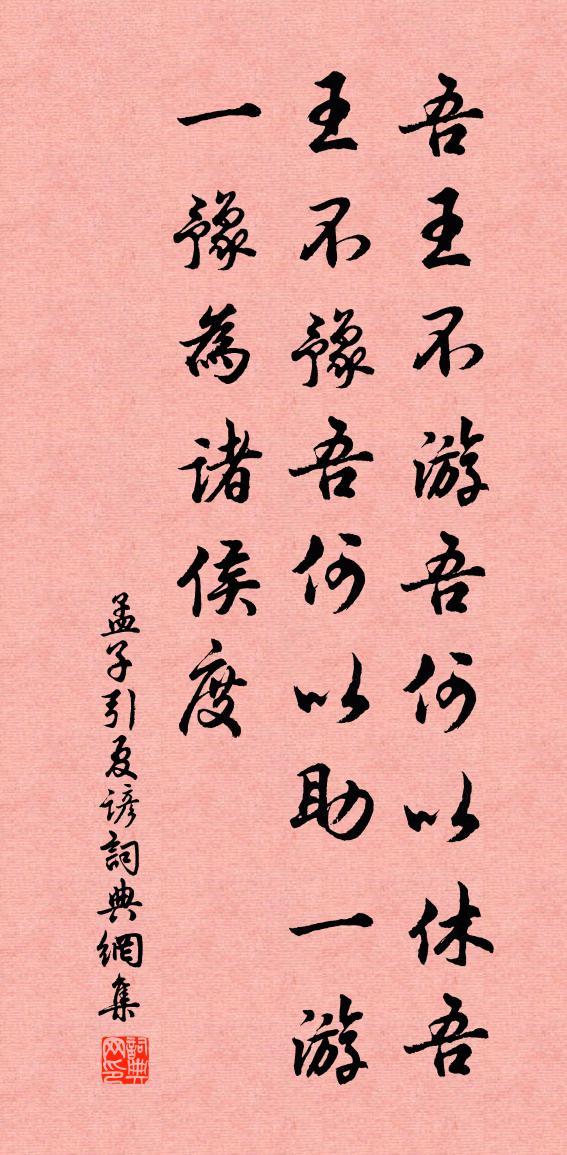 吾王不游吾何以休吾
王不豫吾何以助一游
一豫為諸侯度
孟子引夏諺詞典網集
詞典網印